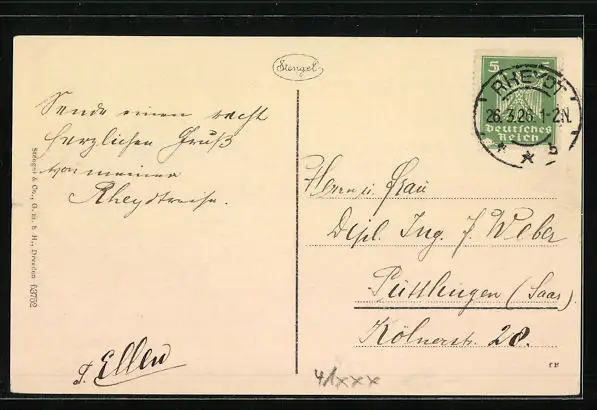 Stengel
Sende einen recht
herzlichen Gruß
von meiner
Rheydtreise.
F. Ellen
Stengel & Co., G. m. b. H., Dresden
5 5
Deutsches
Reich
RHEYDT
26.3.26. 1-2N.
* b
Herrn u. Frau
Dipl. Ing. J. Weber
Püttlingen (Saar)
Kölnerstr. 28.
41xxx